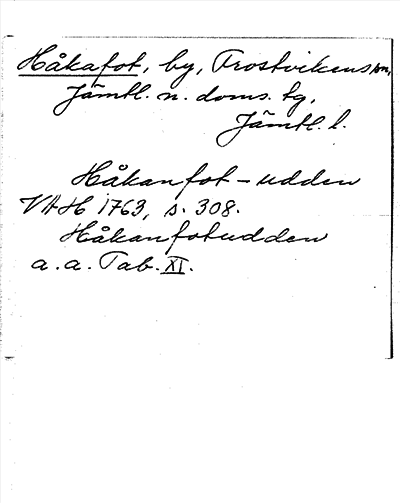 Håkafot, by, Frostvikens sn,
Jämtl. n. doms. tg,
Jämtl. l.
Håkanfot-udden
VAH 1763, s. 308.
Håkanfotudden
a. a. Tab. XI.